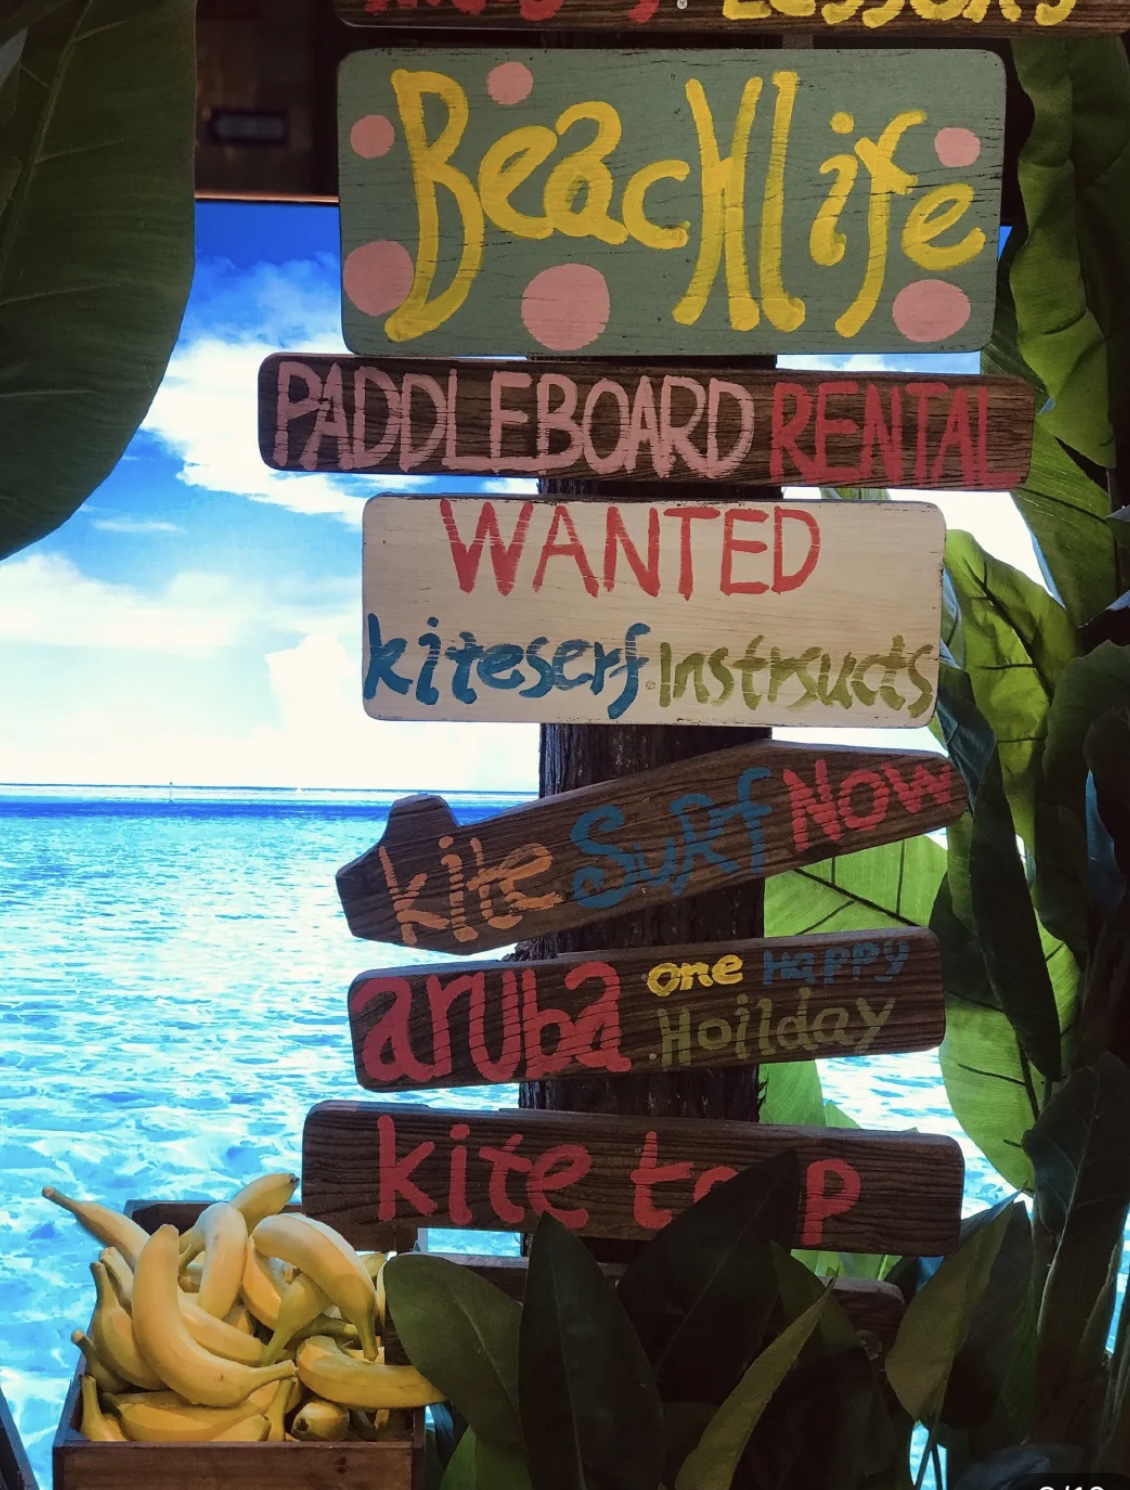 Lessons
BeacHlife
PADDLEBOARD RENTAL
WANTED
kiteserf Instrsucts
kite SuRf NOW
aruba one Happy
Hoilday
kite